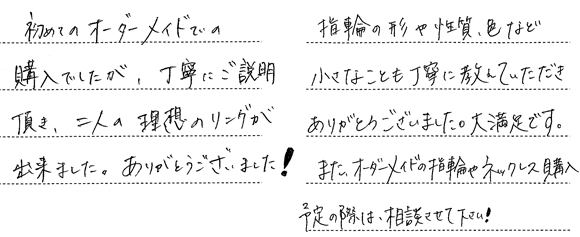 初めてのオーダーメイドでの
購入でしたが、丁寧にご説明
頂き、二人の理想のリングが
出来ました。ありがとうございました!
指輪の形や性質、色など
小さなことも丁寧に教えていただき
ありがとうございました。大満足です。
また、オーダーメイドの指輪やネックレス購入
予定の際は、相談させて下さい!